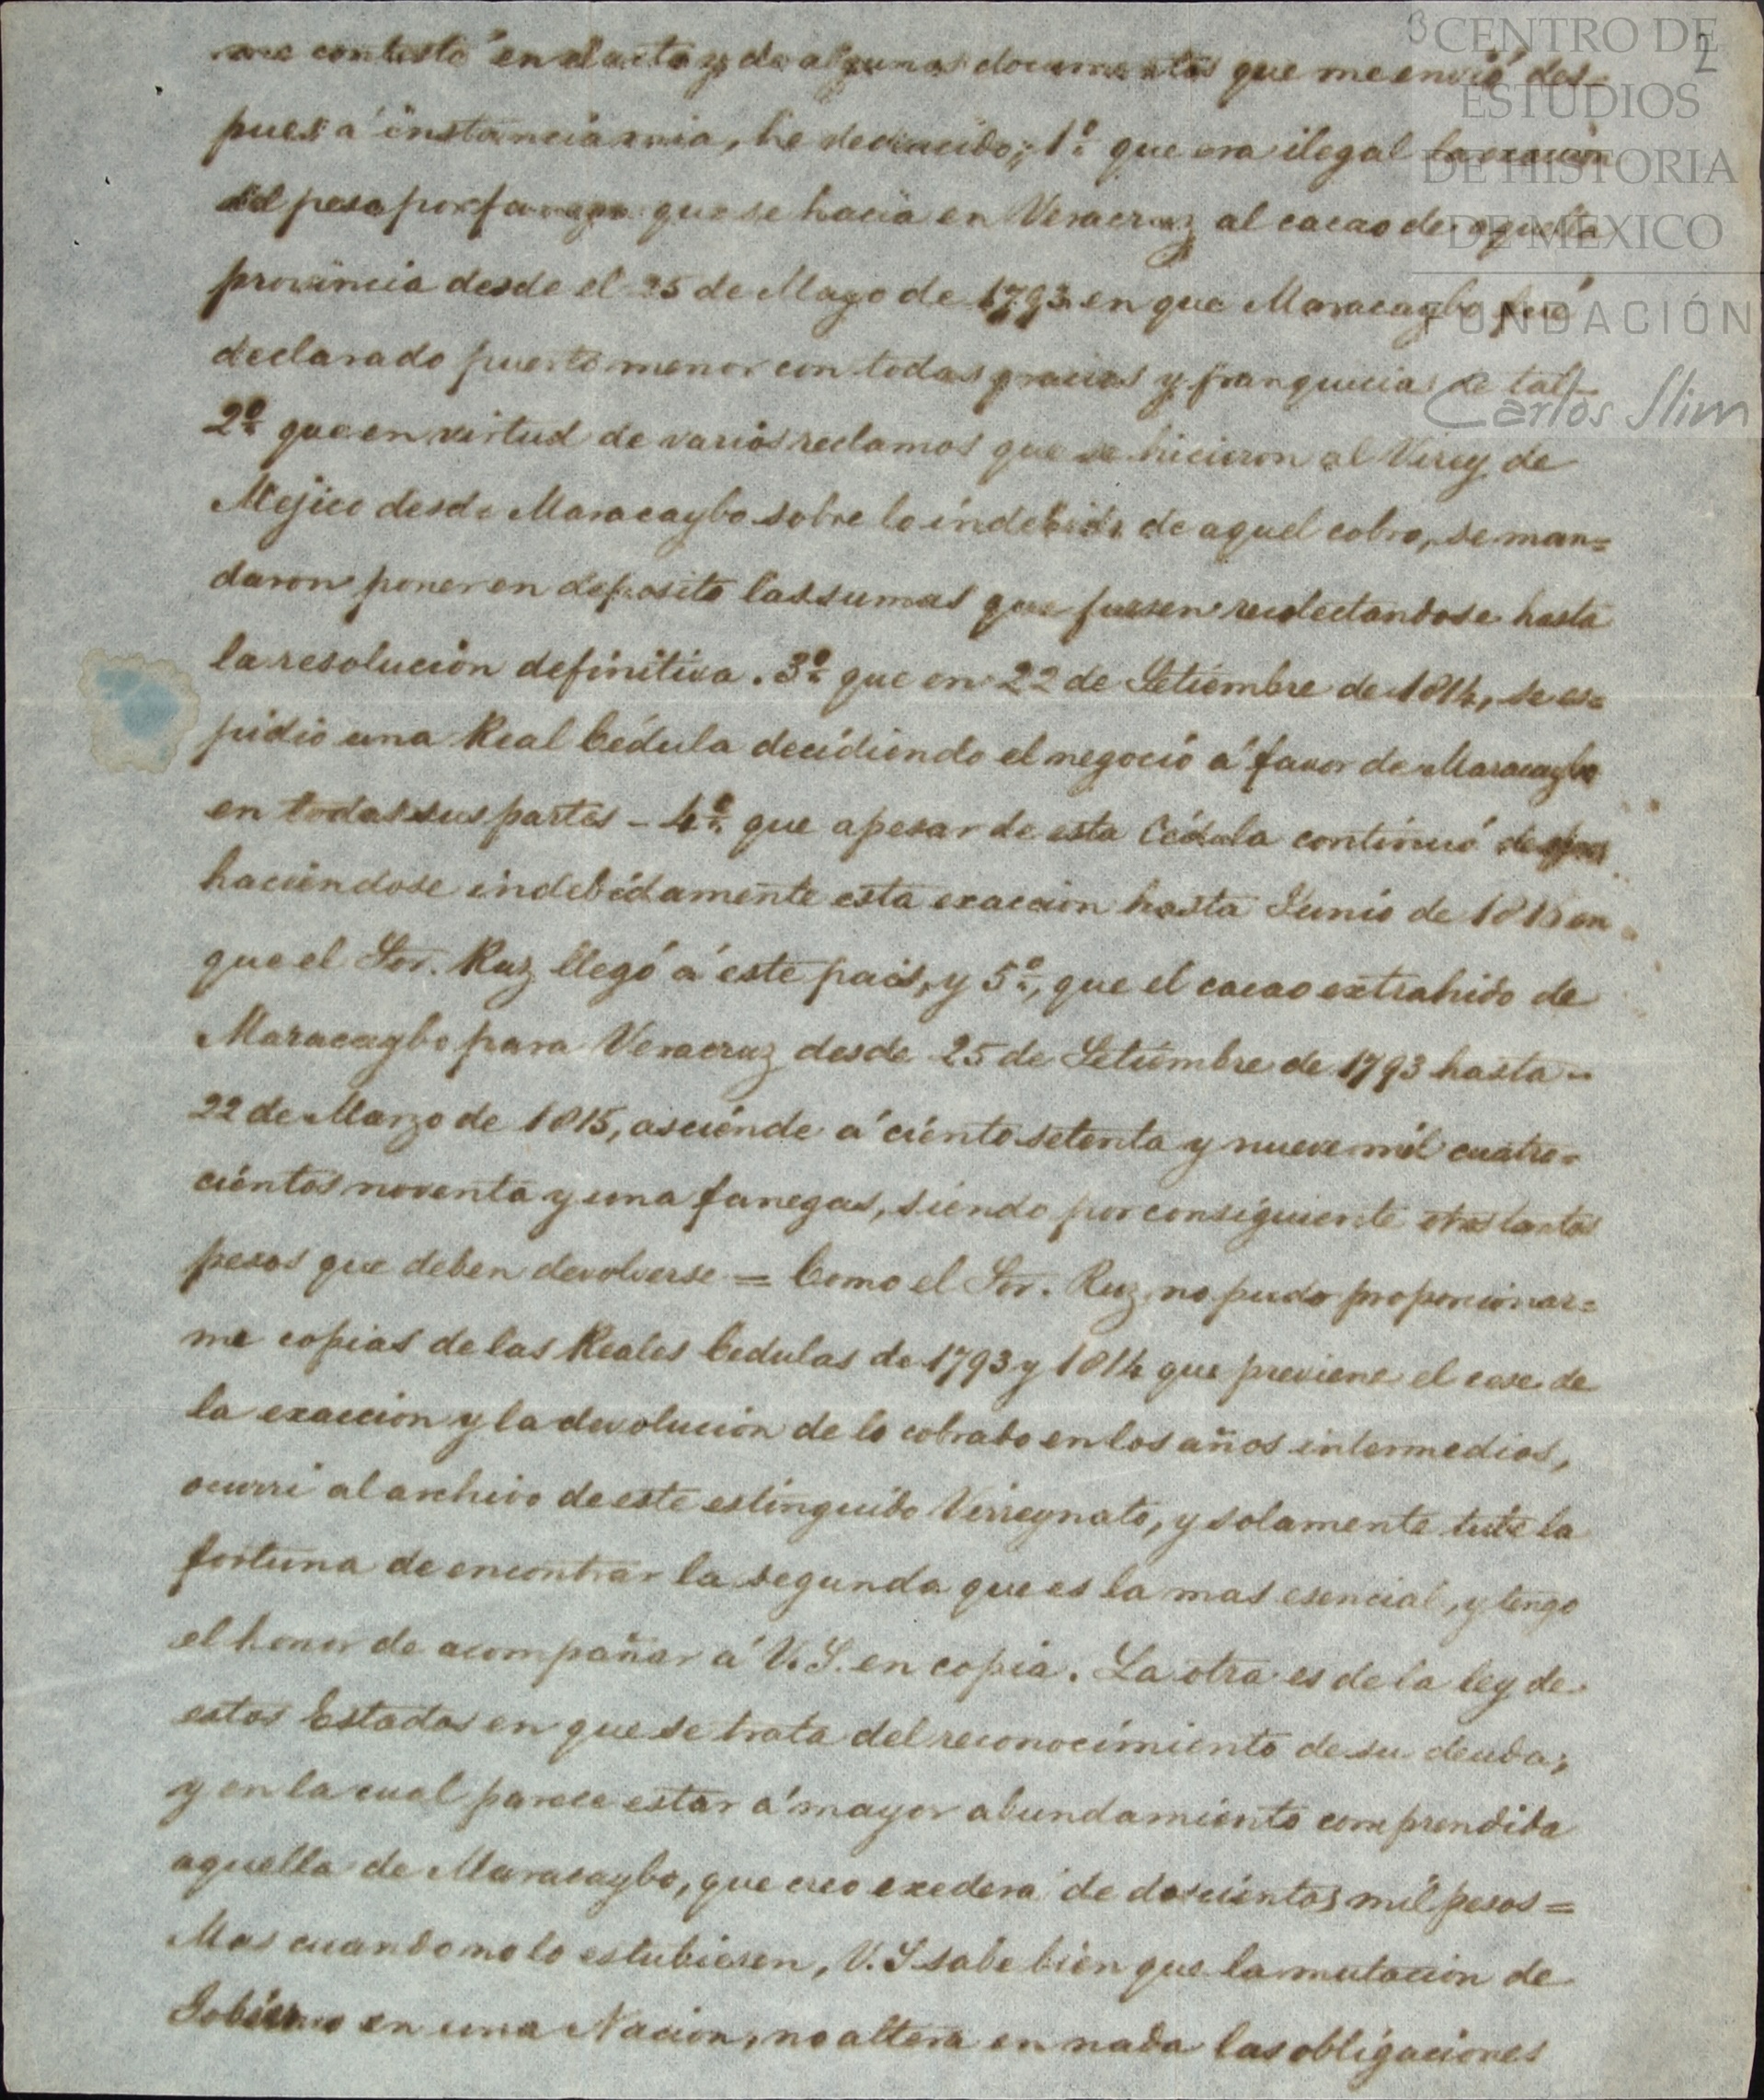 me contestó en el acto y de algunos documentos que me envió des=
pues á instancia mia, he deducido; 1º que era ilegal la exaccion
del peso por fanega que se hacia en Veracruz al cacao de aquella
provincia desde el 25 de Mayo de 1793 en que Maracaybo fué
declarado puerto menor con todas gracias y franquicias de tal
2º que en virtud de varios reclamos que se hicieron al Virey de
Mejico desde Maracaybo sobre lo indebido de aquel cobro, se man=
daron poner en deposito las sumas que fuesen recolectandose hasta
la resolución definitiva. 3º que en 22 de Setiembre de 1814, se es=
pidió una Real Cédula decidiendo el negoció á favor de Maracaybo
en todas sus partes - 4º que apesar de esta Cédula continuó
haciendose indebidamente esta exaccion hasta Junio de en
que el Sor. Ruz llegó á este pais, y 5º, que el cacao extrahido de
Maracaybo para Veracruz desde 25 de Setiembre de 1793 hasta -
22 de Marzo de 1815, asciende á ciento setenta y nueve mil cuatro=
cientos noventa y una fanegas, siendo por consiguiente otros tantos
pesos que deben devolverse = Como el Sor. Ruz no pudo proporcionar=
me copias de las Reales Cedulas de 1793 y 1814 que previene el cese de
la exaccion y la devolución de lo cobrado en los años intermedios,
ocurri al archivo de este estinguido Virreynato, y solamente tube la
fortuna de encontrar la segunda que es la mas esencial, y tengo
el honor de acompañar á V.S. en copia. La otra es de la ley de
estos Estados en que se trata del reconocimiento de su deuda;
y en la cual parece estar á mayor abundamiento comprendida
aquella de Maracaybo, que creo exederá de doscientos mil pesos =
Mas cuando no lo estubiesen, V.S sabe bien que la mutacion de
Gobierno en una Nacion, no altera en nada las obligaciones
CENTRO DE
ESTUDIOS
DE HISTORIA
DE MEXICO
FUNDACIÓN
Carlos Slim